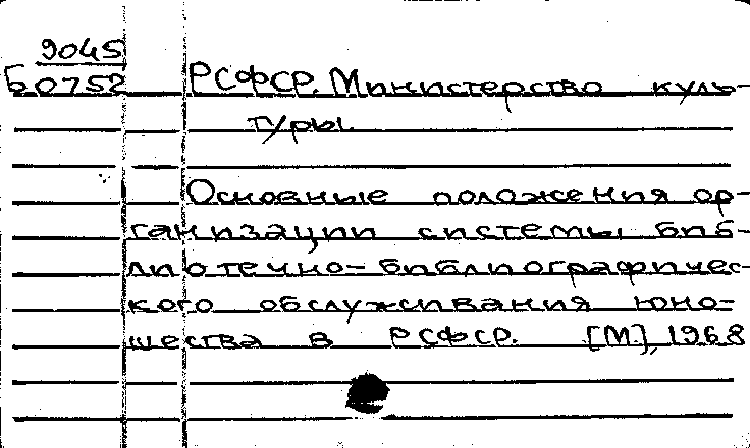 9045
Б0752 РСФСР. Министерство куль-
туры.
Основные положения ор-
ганизации системы биб-
лиотечно-библиографичес-
кого обслуживания юно-
шества в РСФСР. [М.], 1968